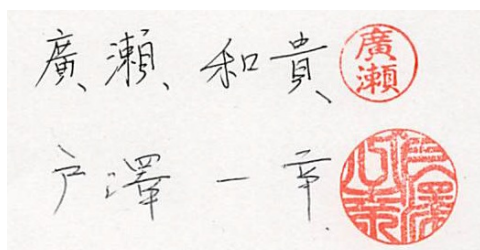 廣瀬 和貴 廣瀬
戸澤 一幸